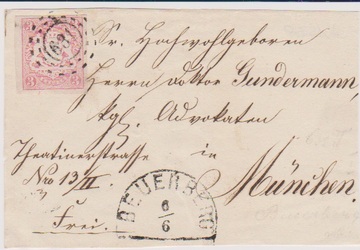 Sr. Hochwohlgeboren
Herrn Doktor Gundermann,
kgl. Advokaten
in
Theatinerstrasse
Nro 13/II
München.
Frei.
BEUERBERG
6/6
3
3